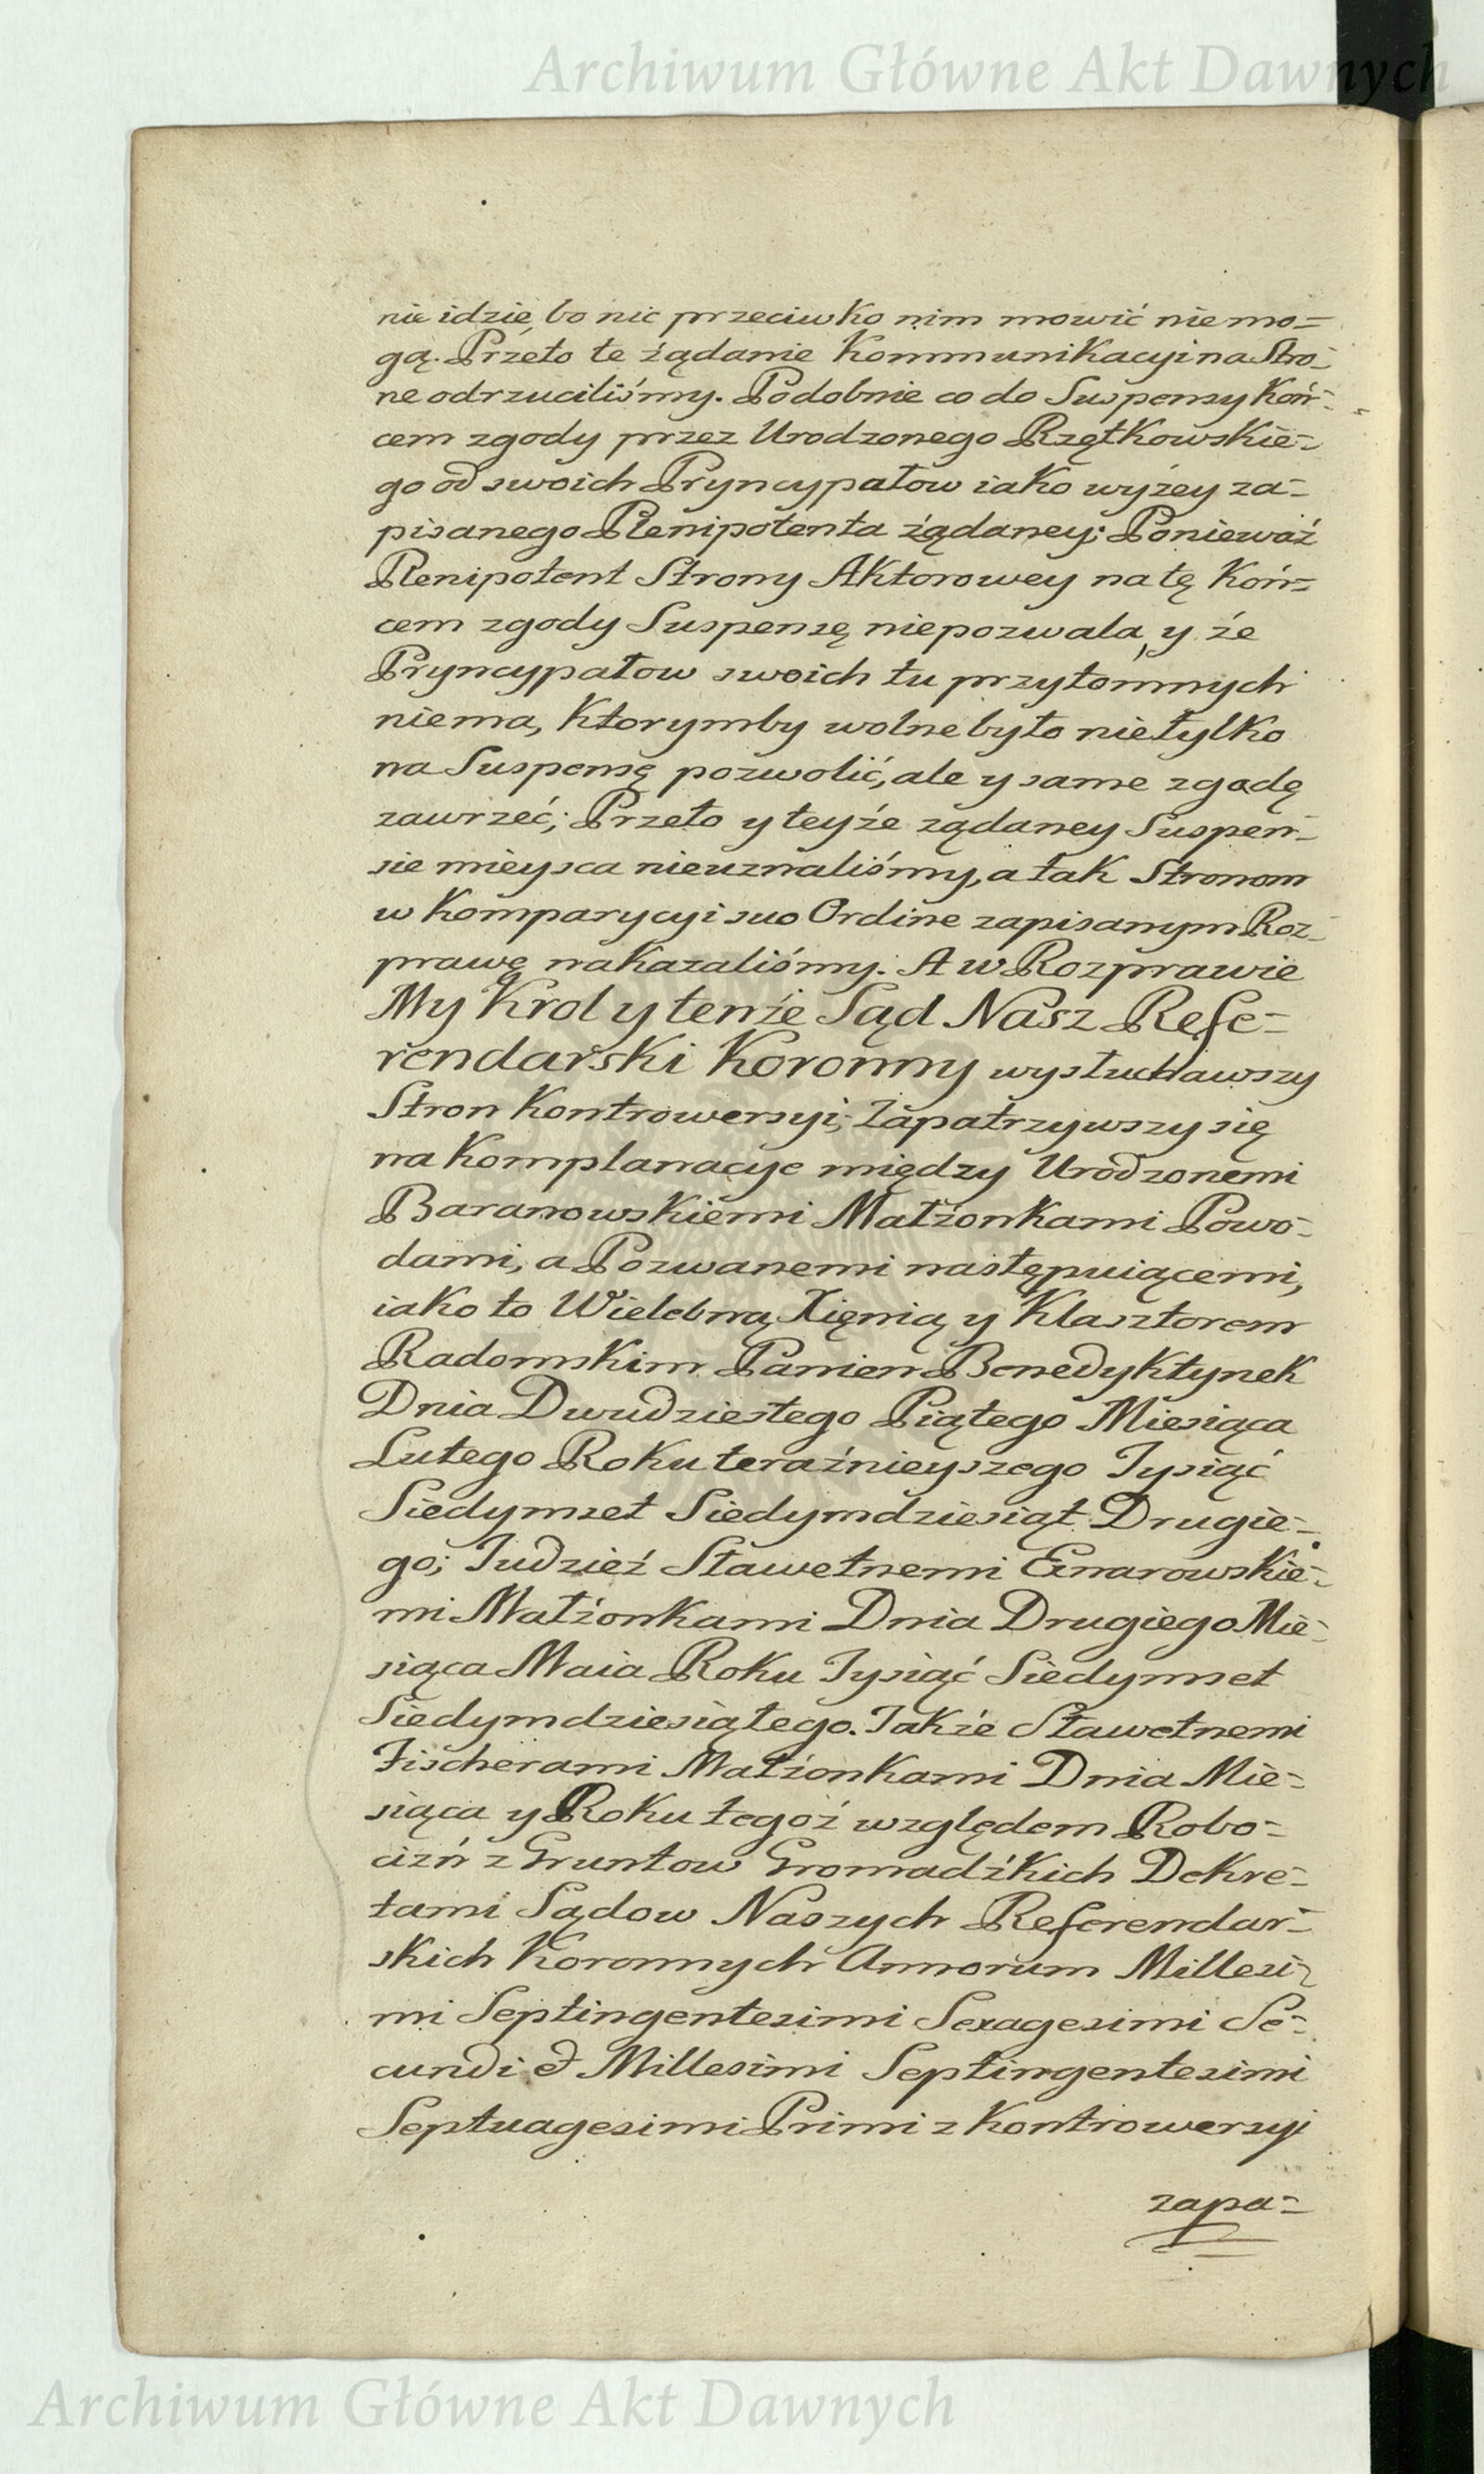 Archiwum Główne Akt Dawnych
nie idzie, bo nic przeciwko nim mowić niemo=
gą. Przeto te żądanie Kommunikacyi na Stro=
ne odrzuciliśmy. Podobnie co do Suspensy Koń=
cem zgody przez Urodzonego Rzętkowskie=
go od swoich Pryncypałow iako wyżey za=
pisanego Plenipotenta żądaney; Ponieważ
Plenipotent Strony Aktorowey na tę Koń=
cem zgody Suspensę niepozwala, y że
Pryncypałow swoich tu przytomnych
niema, Ktorymby wolne było nietylko
na Suspensę pozwolić, ale y same zgodę
zawrzeć; Przeto y teyże żądaney Suspen=
sie mieysca nieuznaliśmy, a tak Stronom
w Komparycyi suo Ordine zapisanym Roz=
prawę nakazaliśmy. A w Rozprawie
My Krol y tenże Sąd Nasz Refe=
rendarski Koronny wysłuchawszy
Stron Kontrowersyi; Zapatrzywszy się
na Komplanacye między Urodzonemi
Baranowskiemi Małżonkami Powo=
dami, a Pozwanemi następuiącemi,
iako to Wielebną Xięnią y Klasztorem
Radomskim Panien Benedyktynek
Dnia Dwudziestego Piątego Miesiąca
Lutego Roku teraźnieyszego Tysiąć
Siedymset Siedymdziesiąt Drugie=
go; Tudzież Sławetnemi Gnarowskie=
mi Małżonkami Dnia Drugiego Mie=
siąca Maia Roku Tysiąć Siedymset
Siedymdziesiątego. Także Sławetnemi
Fischerami Małżonkami Dnia Mie=
siąca y Roku tegoż względem Robo=
cizń z Gruntow Gromadzkich Dekre=
tami Sądow Naszych Referendar=
skich Koronnych Annorum Millesi=
mi Septingentesimi Sexagesimi Se=
cundi et Millesimi Septingentesimi
Septuagesimi Primi z Kontrowersyi
zapa=
Archiwum Główne Akt Dawnych